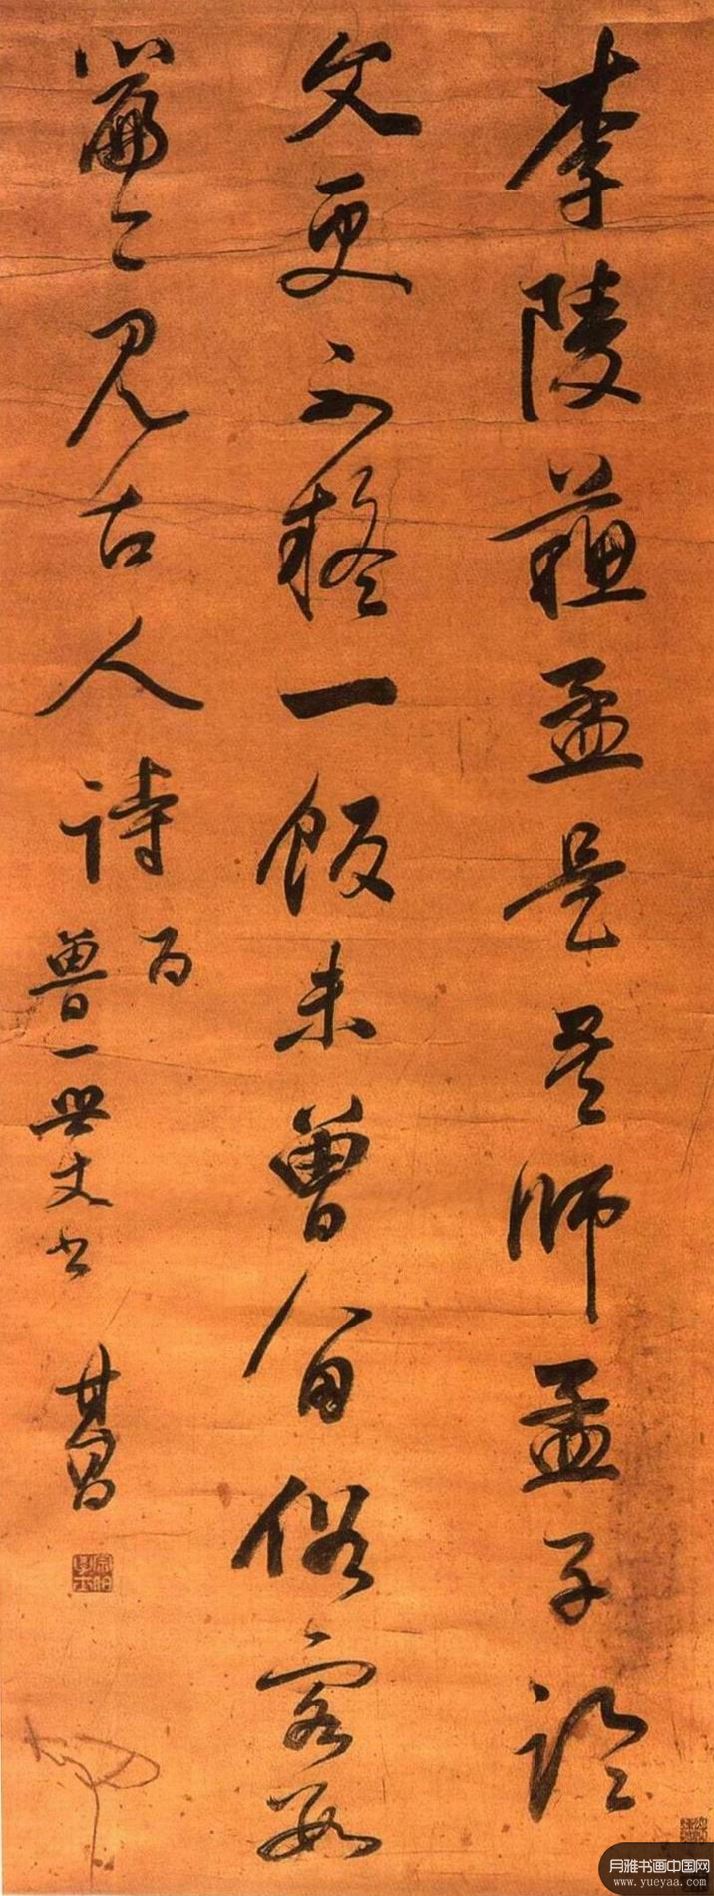 李陵蘇孟是吾師孟子論
文更不疑一飯未曾留俗客數
篇〻見古人詩
為
魯一世丈書
其昌
月雅书画中国网
www.yueyaa.com